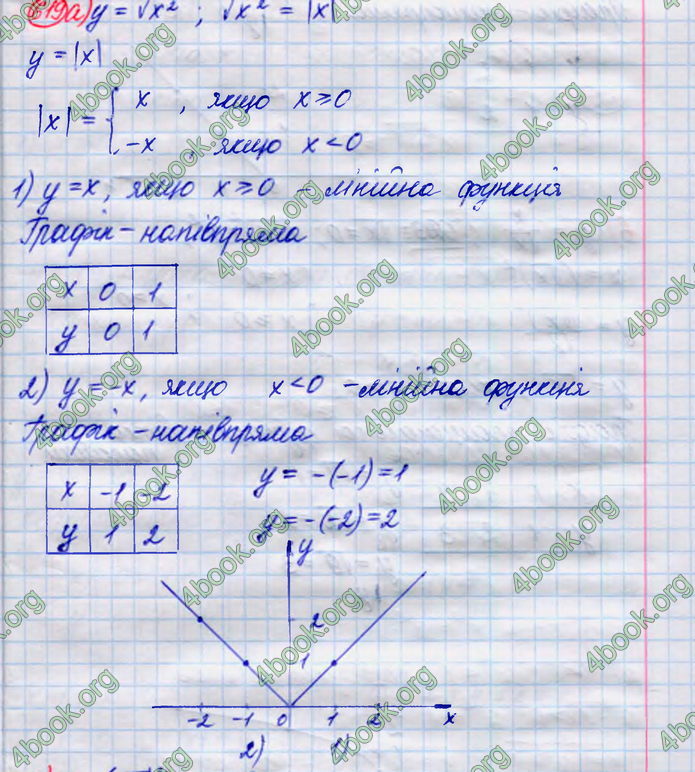 619а) y = √x² ; √x² = |x|
y = |x|
|x| = { x , якщо x ≥ 0
-x , якщо x < 0
1) y = x, якщо x ≥ 0 - лінійна функція
Графік - напівпряма
x 0 1
y 0 1
2) y = -x, якщо x < 0 - лінійна функція
Графік - напівпряма
x -1 -2
y 1 2
y = -(-1) = 1
y = -(-2) = 2
y
2
1
-2 -1 0 1 2 x
2) 1)
4book.org